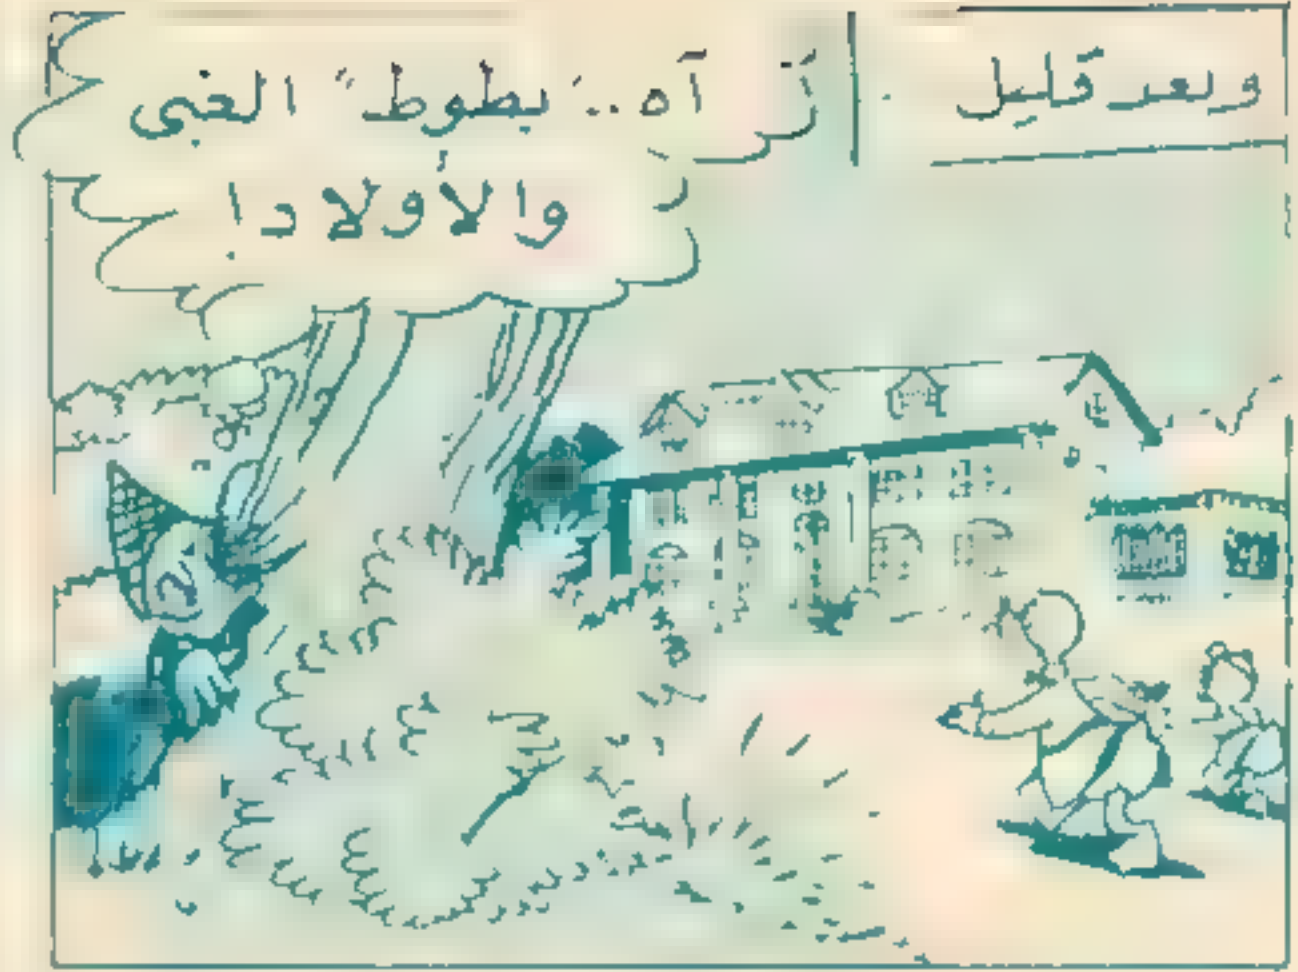 وبعد قليل
آه.. "بطوط" الغبى
والأولاد!